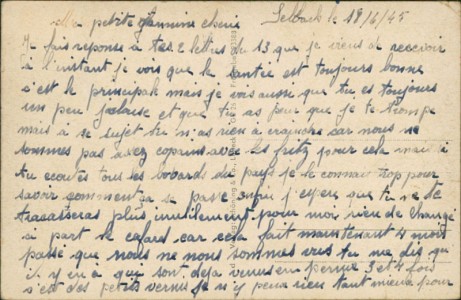 Ma petite femmine cherie Selbach le 18/6/45
Je fais reponse à tes 2 lettres du 13 que je viens de recevoir
à l'instant je vois que la santée est toujours bonne
c'est le principale mais je vois aussi que tu es toujours
un peu jalouse et que tu as peur que je te trompe
mais à se sujet tu n'as rien à craindre car nous ne
sommes pas assez copains avec les fritz pour cela mais si
tu ecoutes tous les bobards du pays je le connais trop pour
savoir comment ça se passe enfin j'espere que tu ne te
tracasseras plus inutilement pour moi rien de changé
à part le cafard car cela fait maintenant 4 mois
passé que nous ne nous sommes vus tu me dis qu'
il y en à qui sont deja venus en perme 3 et 4 fois
c'est des petits vernis je n'y peux rien tant mieux pour